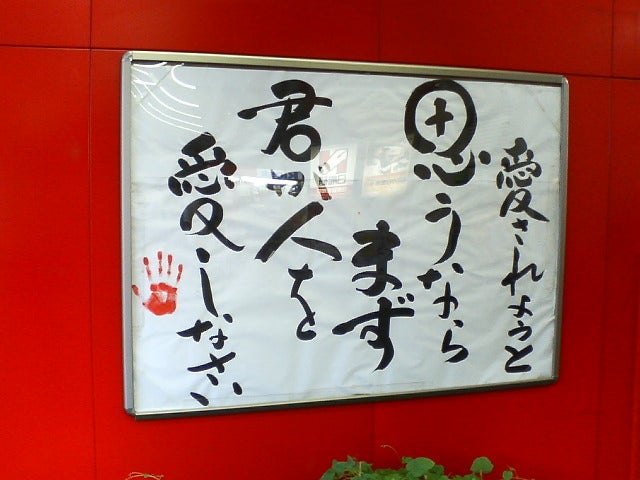 愛されようと
思うなら
まず
君が人を
愛しなさい